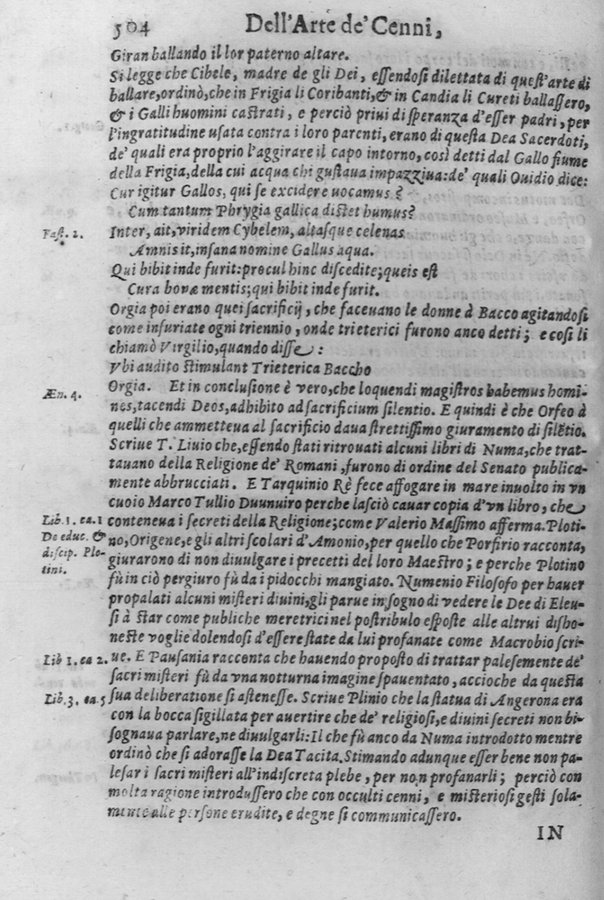 504
Dell'Arte de' Cenni,
Giran ballando il lor paterno altare.
Si legge che Cibele, madre de gli Dei, essendosi dilettata di quest'arte di
ballare, ordinò, che in Frigia li Coribanti, & in Candia li Cureti ballassero,
& i Galli huomini castrati, e perciò priui di speranza d'esser padri, per
l'ingratitudine usata contra i loro parenti, erano di questa Dea Sacerdoti,
de' quali era proprio l'aggirare il capo intorno, così detti dal Gallo fiume
della Frigia, della cui acqua chi gustaua impazziua: de' quali Ouidio dice:
Cur igitur Gallos, qui se excidere uocamus?
Cum tantum Phrygia gallica distet humus?
Fast. 2.
Inter, ait, viridem Cybelem, altasque celenas
Amnis it, insana nomine Gallus aqua.
Qui bibit inde furit: procul hinc discedite; queis est
Cura bonæ mentis; qui bibit inde furit.
Orgia poi erano quei sacrificij, che faceuano le donne à Bacco agitandosi
come infuriate ogni triennio, onde trieterici furono anco detti; e cosi li
chiamò Virgilio, quando disse:
Vbi audito Stimulant Trieterica Baccho
Æn. 4.
Orgia. Et in conclusione è vero, che loquendi magistros habemus homi-
nes, tacendi Deos, adhibito ad sacrificium silentio. E quindi è che Orfeo à
quelli che ammetteua al sacrificio daua strettissimo giuramento di silẽtio.
Scriue T. Liuio che, essendo stati ritrouati alcuni libri di Numa, che trat-
tauano della Religione de' Romani, furono di ordine del Senato publica-
mente abbrucciati. E Tarquinio Rè fece affogare in mare inuolto in vn
cuoio Marco Tullio Duunuiro perche lasciò cauar copia d'vn libro, che
Lib. 1. ca. 1
conteneua i secreti della Religione; come Valerio Massimo afferma. Ploti-
De educ. &
no, Origene, e gli altri scolari d'Amonio, per quello che Porfirio racconta,
discip. Plo-
giurarono di non diuulgare i precetti del loro Maestro; e perche Plotino
tini.
fù in ciò pergiuro fù da i pidocchi mangiato. Numenio Filosofo per hauer
propalati alcuni misteri diuini, gli parue in sogno di vedere le Dee di Eleu-
si à star come publiche meretrici nel postribulo esposte alle altrui disho-
neste voglie dolendosi d'essere state da lui profanate come Macrobio scri-
Lib 1. ca 2.
ue. E Pausania racconta che hauendo proposto di trattar palesemente de'
sacri misteri fù da vna notturna imagine spauentato, accioche da questa
Lib. 3. ca. 5
sua deliberatione si astenesse. Scriue Plinio che la statua di Angerona era
con la bocca sigillata per auertire che de' religiosi, e diuini secreti non bi-
sognaua parlare, ne diuulgarli: Il che fù anco da Numa introdotto mentre
ordinò che si adorasse la Dea Tacita. Stimando adunque esser bene non pa-
lesar i sacri misteri all'indiscreta plebe, per non profanarli; perciò con
molta ragione introdussero che con occulti cenni, e misteriosi gesti sola-
mente alle persone erudite, e degne si communicassero.
IN